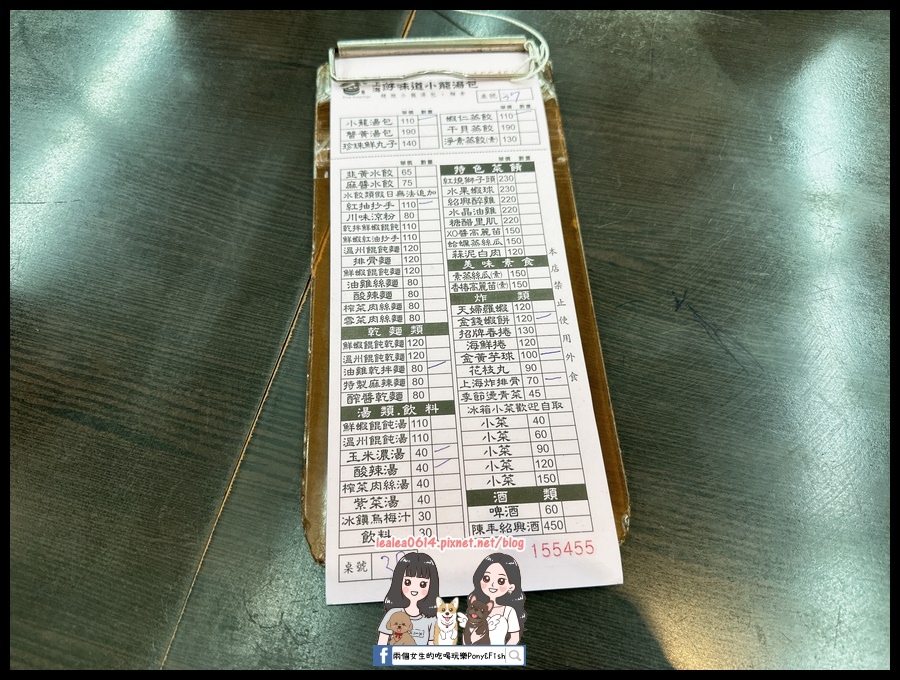 好味道小龍湯包
桌號 27
單價 數量
小龍湯包 110
蟹黃湯包 190
珍珠鮮丸子 140
單價 數量
蝦仁蒸餃 110
干貝蒸餃 190
淨素蒸餃(素) 130
單價 數量
韭黃水餃 65
麻醬水餃 75
水餃類假日無法追加
紅抽抄手 110
川味涼粉 80
乾拌鮮蝦餛飩 110
鮮蝦紅油抄手 110
溫州餛飩麵 120
排骨麵 120
鮮蝦餛飩麵 120
油雞絲麵 80
酸辣麵 80
榨菜肉絲麵 80
雪菜肉絲麵 80
乾麵類
鮮蝦餛飩乾麵 120
溫州餛飩乾麵 120
油雞乾拌麵 80
特製麻辣麵 80
醡醬乾麵 80
湯類.飲料
鮮蝦餛飩湯 110
溫州餛飩湯 110
玉米濃湯 40
酸辣湯 40
榨菜肉絲湯 40
紫菜湯 40
冰鎮烏梅汁 30
飲料 30
桌號
單價 數量
特色菜餚
紅燒獅子頭 230
水果蝦球 230
紹興醉雞 220
水晶油雞 220
糖醋里肌 220
XO醬高麗苗 150
蛤蠣蒸絲瓜 150
蒜泥白肉 120
美味素食
素蒸絲瓜(素) 150
香椿高麗苗(素) 150
炸類
天婦羅蝦 120
金錢蝦餅 120
招牌香捲 130
海鮮捲 120
金黃芋球 100
花枝丸 90
上海炸排骨 70
季節燙青菜 45
冰箱小菜歡迎自取
小菜 40
小菜 60
小菜 90
小菜 120
小菜 150
酒類
啤酒 60
陳年紹興酒 450
本店禁止使用外食
155455
lealea0614.pixnet.net/blog
兩個女生的吃喝玩樂Pony&Fish